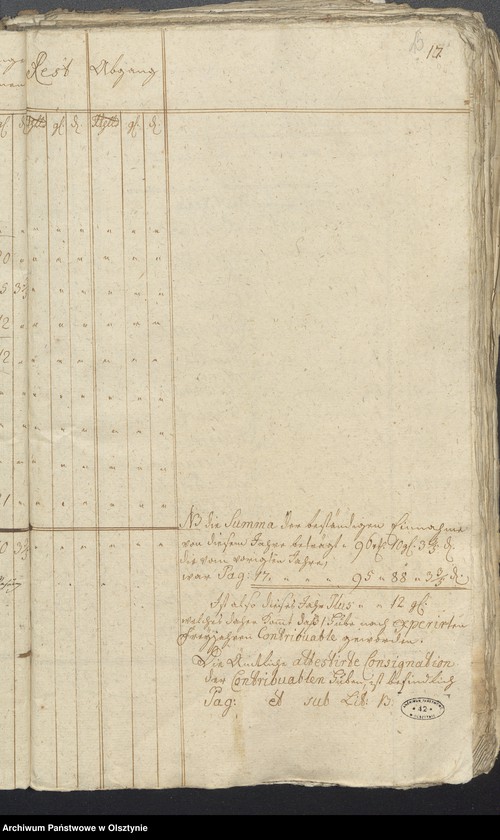 17.
Rest Abgang
gl. d. gl. d.
NB die Summa der beständigen Einnahme
von diesem Jahre beträgt 96 10 gl. 3 d.
die vom vorigten Jahre,
war Pag: 17. " " " 95 " 88 " 3 d.
Ist also dieses Jahr Plus " " 12 gl.
welches daher komt daß 1 Hube nach expirirten
Freyjahren Contribuable geworden.
Die Amtliche attestirte Consignation
der Contribuablen Huben, ist befindlich
Pag: et sub Lit: B.
ARCHIWUM PAŃSTWOWE
42
W OLSZTYNIE
Archiwum Państwowe w Olsztynie